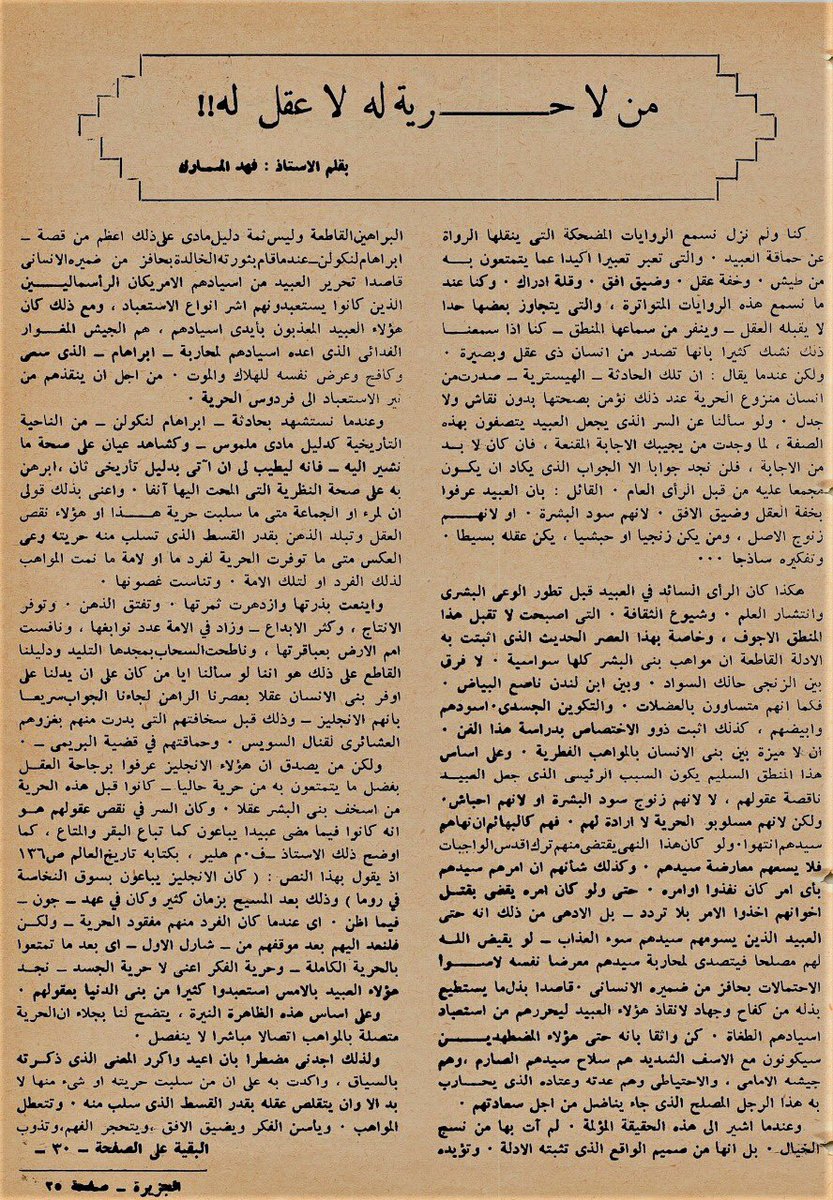 من لا حـــرية له لا عقل له!!
بقلم الاستاذ : فهد المـارك
كنا ولم نزل نسمع الروايات المضحكة التى ينقلها الرواة
عن حماقة العبيد ٠ والتى تعبر تعبيرا اكيدا عما يتمتعون بـه
من طيش ٠ وخفة عقل ٠ وضيق افق ٠ وقلة ادراك ٠ وكنا عند
ما نسمع هذه الروايات المتواترة ، والتى يتجاوز بعضها حدا
لا يقبله العقل ــ وينفر من سماعها المنطق ــ كنا اذا سمعنـا
ذلك نشك كثيرا بانها تصدر من انسان ذى عقل وبصيرة ٠
ولكن عندما يقال : ان تلك الحادثة ــ الهيسترية ــ صدرت من
انسان منزوع الحرية عند ذلك نؤمن بصحتها بدون نقاش ولا
جدل ٠ ولو سألنا عن السر الذى يجعل العبيد يتصفون بهذه
الصفة ، لما وجدت من يجيبك الاجابة المقنعة ، فان كان لا بـد
من الاجابة ، فلن نجد جوابا الا الجواب الذى يكاد ان يكـون
مجمعا عليه من قبل الرأى العام ٠ القائل : بان العبيد عرفوا
بخفة العقل وضيق الافق ٠ لانهم سود البشرة ٠ او لانهــم
زنوج الاصل ، ومن يكن زنجيا او حبشيا ، يكن عقله بسيطا ٠
وتفكيره ساذجا ٠٠٠
هكذا كان الرأى السائد في العبيد قبل تطور الوعى البشرى
وانتشار العلم ٠ وشيوع الثقافة ٠ التى اصبحت لا تقبل هذا
المنطق الاجوف ، وخاصة بهذا العصر الحديث الذى اثبتت به
الادلة القاطعة ان مواهب بنى البشر كلها سواسية ٠ لا فرق
بين الزنجى حالك السواد ٠ وبين ابن لندن ناصع البياض ٠
فكما انهم متساوون بالعضلات ٠ والتكوين الجسدى٠اسودهم
وابيضهم ، كذلك اثبت ذوو الاختصاص بدراسة هذا الفن ٠
أن لا ميزة بين بنى الانسان بالمواهب الفطرية ٠ وعلى اساس
هذا المنطق السليم يكون السبب الرئيسى الذى جعل العبيـد
ناقصة عقولهم ، لا لانهم زنوج سود البشرة او لانهم احباش٠
ولكن لانهم مسلوبو الحرية لا ارادة لهم ٠ فهم كالبهائم ان نهاهم
سيدهم انتهوا٠ولو كان هذا النهى يقتضى منهم ترك اقدس الواجبات
فلا يسعهم معارضة سيدهم ٠ وكذلك شأنهم ان امرهم سيدهم
بأى امر كان نفذوا اوامره ٠ حتى ولو كان امره يقضى بقتـل
اخوانهم اخذوا الامر بلا تردد ــ بل الادهى من ذلك انه حتى
العبيد الذين يسومهم سيدهم سوء العذاب ــ لو يقيض اللـه
لهم مصلحا فيتصدى لمحاربة سيدهم معرضا نفسه لاسـوأ
الاحتمالات بحافز من ضميره الانسانى ٠ قاصدا بذل ما يستطيع
بذله من كفاح وجهاد لانقاذ هؤلاء العبيد ليحررهم من استعباد
اسيادهم الطغاة ٠ كن واثقا بانه حتى هؤلاء المضطهديــن
سيكونون مع الاسف الشديد هم سلاح سيدهم الصارم ،وهم
جيشه الامامى ، والاحتياطى وهم عدته وعتاده الذى يحـارب
به هذا الرجل المصلح الذى جاء يناضل من اجل سعادتهم ٠
وعندما اشير الى هذه الحقيقة المؤلمة ٠ لم آت بها من نسج
الخيال ٠ بل انها من صميم الواقع الذى تثبته الادلة ٠ وتؤيده
البراهين القاطعة وليس ثمة دليل مادى على ذلك اعظم من قصة ــ
ابراهام لنكولن ــ عندما قام بثورته الخالدة بحافز من ضميره الانسانى
قاصدا تحرير العبيد من اسيادهم الامريكان الرأسماليـين
الذين كانوا يستعبدونهم اشر انواع الاستعباد ، ومع ذلك كان
هؤلاء العبيد المعذبون بأيدى اسيادهم ، هم الجيش المغـوار
الفدائى الذى اعده اسيادهم لمحاربة ــ ابراهام ــ الذى سعى
وكافح وعرض نفسه للهلاك والموت ٠ من اجل ان ينقذهم من
نير الاستعباد الى فردوس الحرية ٠
وعندما نستشهد بحادثة ــ ابراهام لنكولن ــ من الناحية
التأريخية كدليل مادى ملموس ــ وكشاهد عيان على صحة ما
نشير اليه ــ فانه ليطيب لى ان آتى بدليل تأريخى ثان ،ابرهن
به على صحة النظرية التى المحت اليها آنفا ٠ واعنى بذلك قولى
ان لمرء او الجماعة متى ما سلبت حرية هــذا او هؤلاء نقص
العقل وتبلد الذهن بقدر القسط الذى تسلب منه حريته وعى
العكس متى ما توفرت الحرية لفرد ما او لامة ما نمت المواهب
لذلك الفرد او لتلك الامة ٠ وتناست غصونها ٠
واينعت بذرتها وازدهرت ثمرتها ٠ وتفتق الذهن ٠ وتوفر
الانتاج ، وكثر الابداع ــ وزاد في الامة عدد نوابغها ، ونافست
امم الارض بعباقرتها ، وناطحت السحاب بمجدها التليد ودليلنا
القاطع على ذلك هو اننا لو سألنا ايا من كان على ان يدلنا على
اوفر بنى الانسان عقلا بعصرنا الراهن لجاءنا الجواب سريعـا
بانهم الانجليز ــ وذلك قبل سخافتهم التى بدرت منهم بغزوهم
العشائرى لقنال السويس ٠ وحماقتهم في قضية البريمى ــ ٠
ولكن من يصدق ان هؤلاء الانجليز عرفوا برجاحة العقـل
بفضل ما يتمتعون به من حرية حاليا ــ كانوا قبل هذه الحرية
من اسخف بنى البشر عقلا ٠ وكان السر في نقص عقولهم هـو
انه كانوا فيما مضى عبيدا يباعون كما تباع البقر والمتاع ، كما
اوضح ذلك الاستاذ ــ ف٠م هلير ، بكتابه تاريخ العالم ص١٣٦
اذ يقول بهذا النص : ( كان الانجليز يباعون بسوق النخاسة
في روما ) وذلك بعد المسيح بزمان كثير وكان في عهد ــ جون ــ
فيما اظن ٠ اى عندما كان الفرد منهم مفقود الحرية ــ ولكـن
فلنعد اليهم بعد موقفهم من ــ شارل الاول ــ اى بعد ما تمتعوا
بالحرية الكاملة ــ وحرية الفكر اعنى لا حرية الجسد ــ نجـد
هؤلاء العبيد بالامس استعبدوا كثيرا من بنى الدنيا بعقولهم ٠
وعلى اساس هذه الظاهرة النيرة ، يتضح لنا بجلاء ان الحرية
متصلة بالمواهب اتصالا مباشرا لا ينفصل ٠
ولذلك اجدنى مضطرا بان اعيد واكرر المعنى الذى ذكرته
بالسياق ، واكدت به على ان من سلبت حريته او شىء منها لا
بد الا وان يتقلص عقله بقدر القسط الذى سلب منه ٠ وتتعطل
المواهب ٠ ويأسن الفكر ويضيق الافق ،ويتحجر الفهم،وتذوب
البقية على الصفحة ــ ٣٠ ــ
الجزيرة ــ صفحة ٢٥